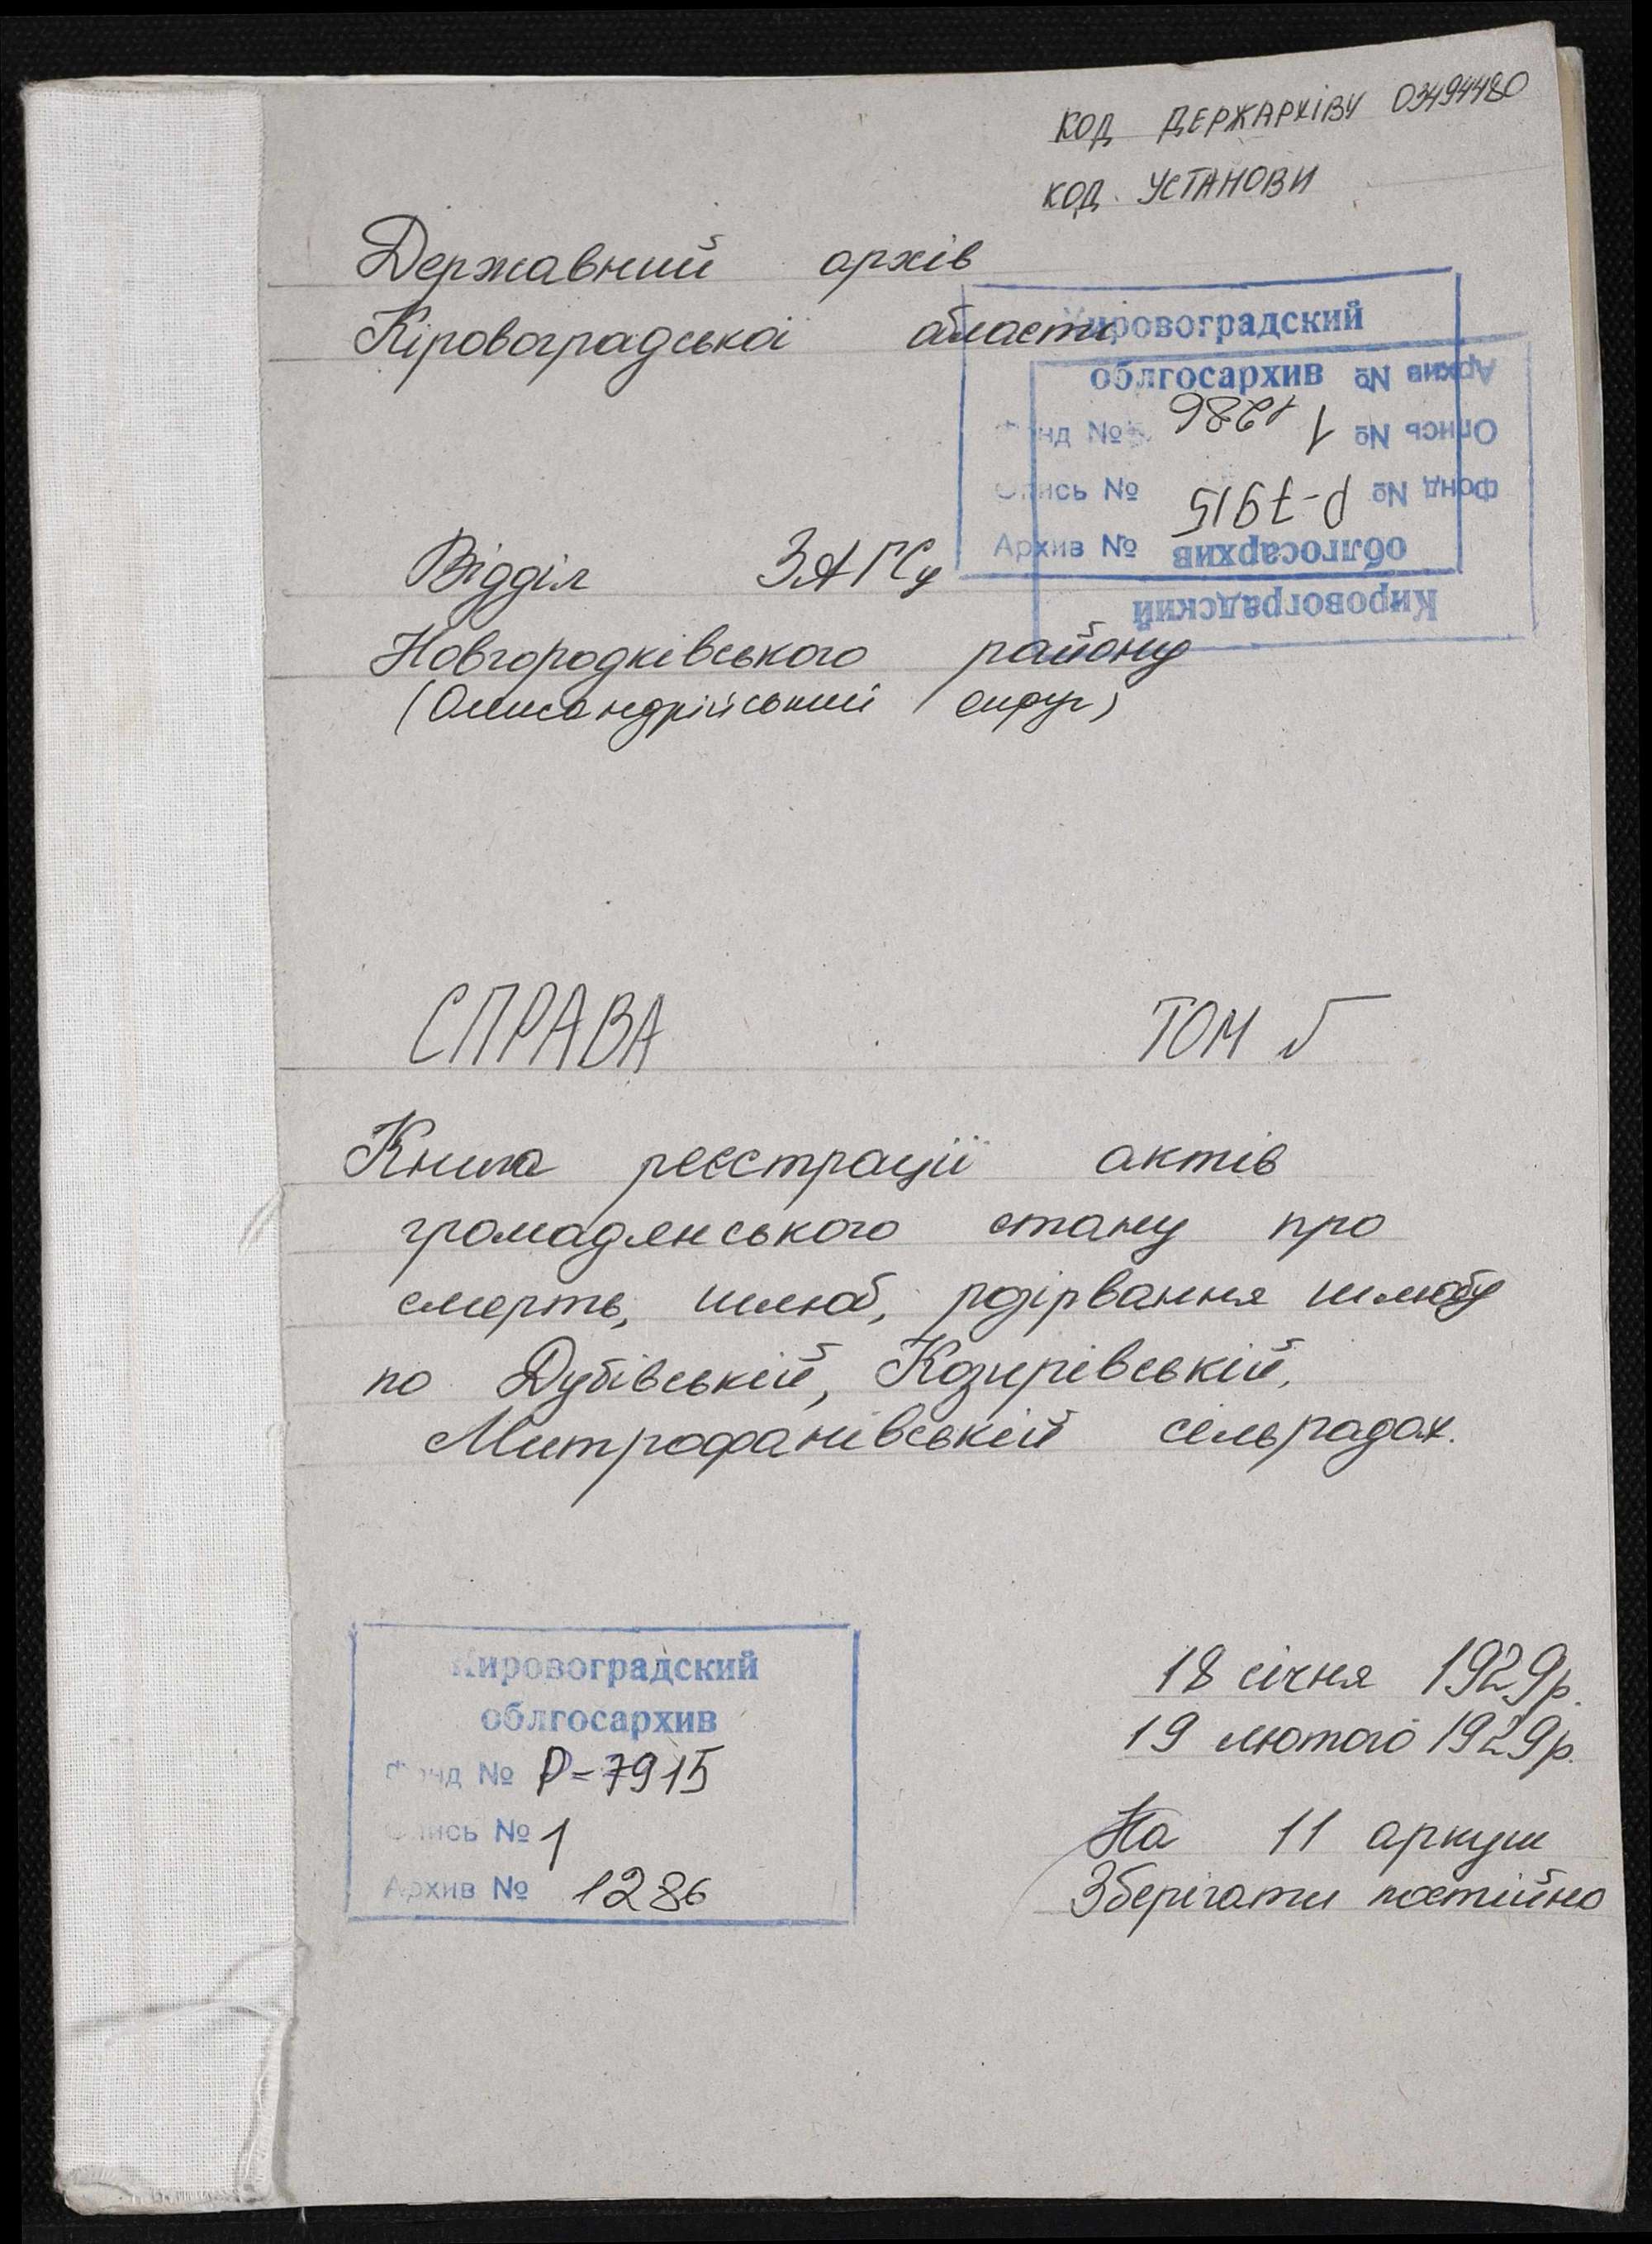 КОД ДЕРЖАРХІВУ 03494480
КОД УСТАНОВИ
Державний архів
Кіровоградської області
Кировоградский
облгосархив
Фонд №
Опись №
Архив №
Кировоградский
облгосархив
Фонд № Р-7915
Опись № 1
Архив № 1286
Відділ ЗАГСу
Новгородківського району
(Олександрійський округ)
СПРАВА ТОМ 5
Книга реєстрації актів
громадянського стану про
смерть, шлюб, розірвання шлюбу
по Дубівській, Козирівській,
Митрофанівській сільрадах.
Кировоградский
облгосархив
Фонд № Р-7915
Опись № 1
Архив № 1286
18 січня 1929р.
19 лютого 1929р.
На 11 аркуш
Зберігати постійно